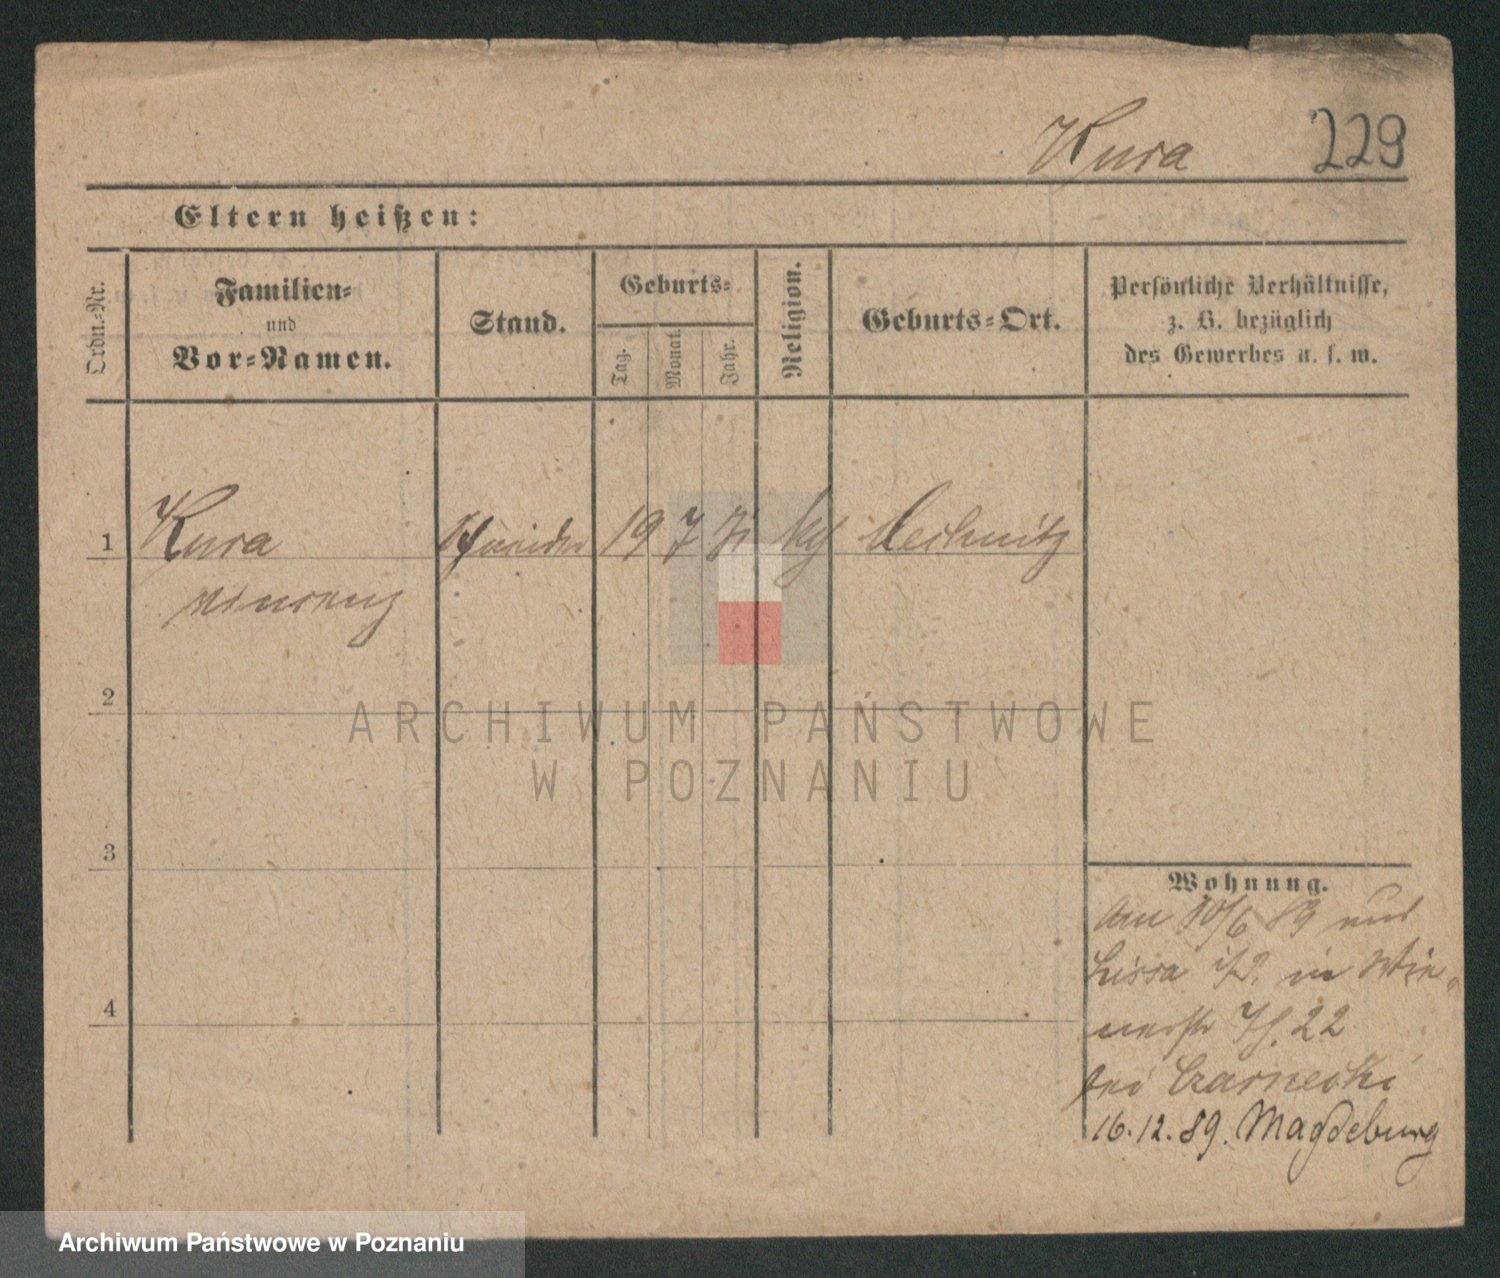 Kura 229
Eltern heißen:
Ordn.-Nr.
Familien-
und
Vor-Namen.
Stand.
Geburts-
Tag.
Monat.
Jahr.
Religion.
Geburts-Ort.
Persönliche Verhältnisse,
z. B. bezüglich
des Gewerbes u. s. w.
1 Kura Schneider 19 7 kg
2
ARCHIWUM PAŃSTWOWE
W POZNANIU
3
Wohnung.
Am 10/6 89 aus
Lissa in Wie-
nerstr 22
4
bei Czarnecki
16.12.89. Magdeburg
Archiwum Państwowe w Poznaniu